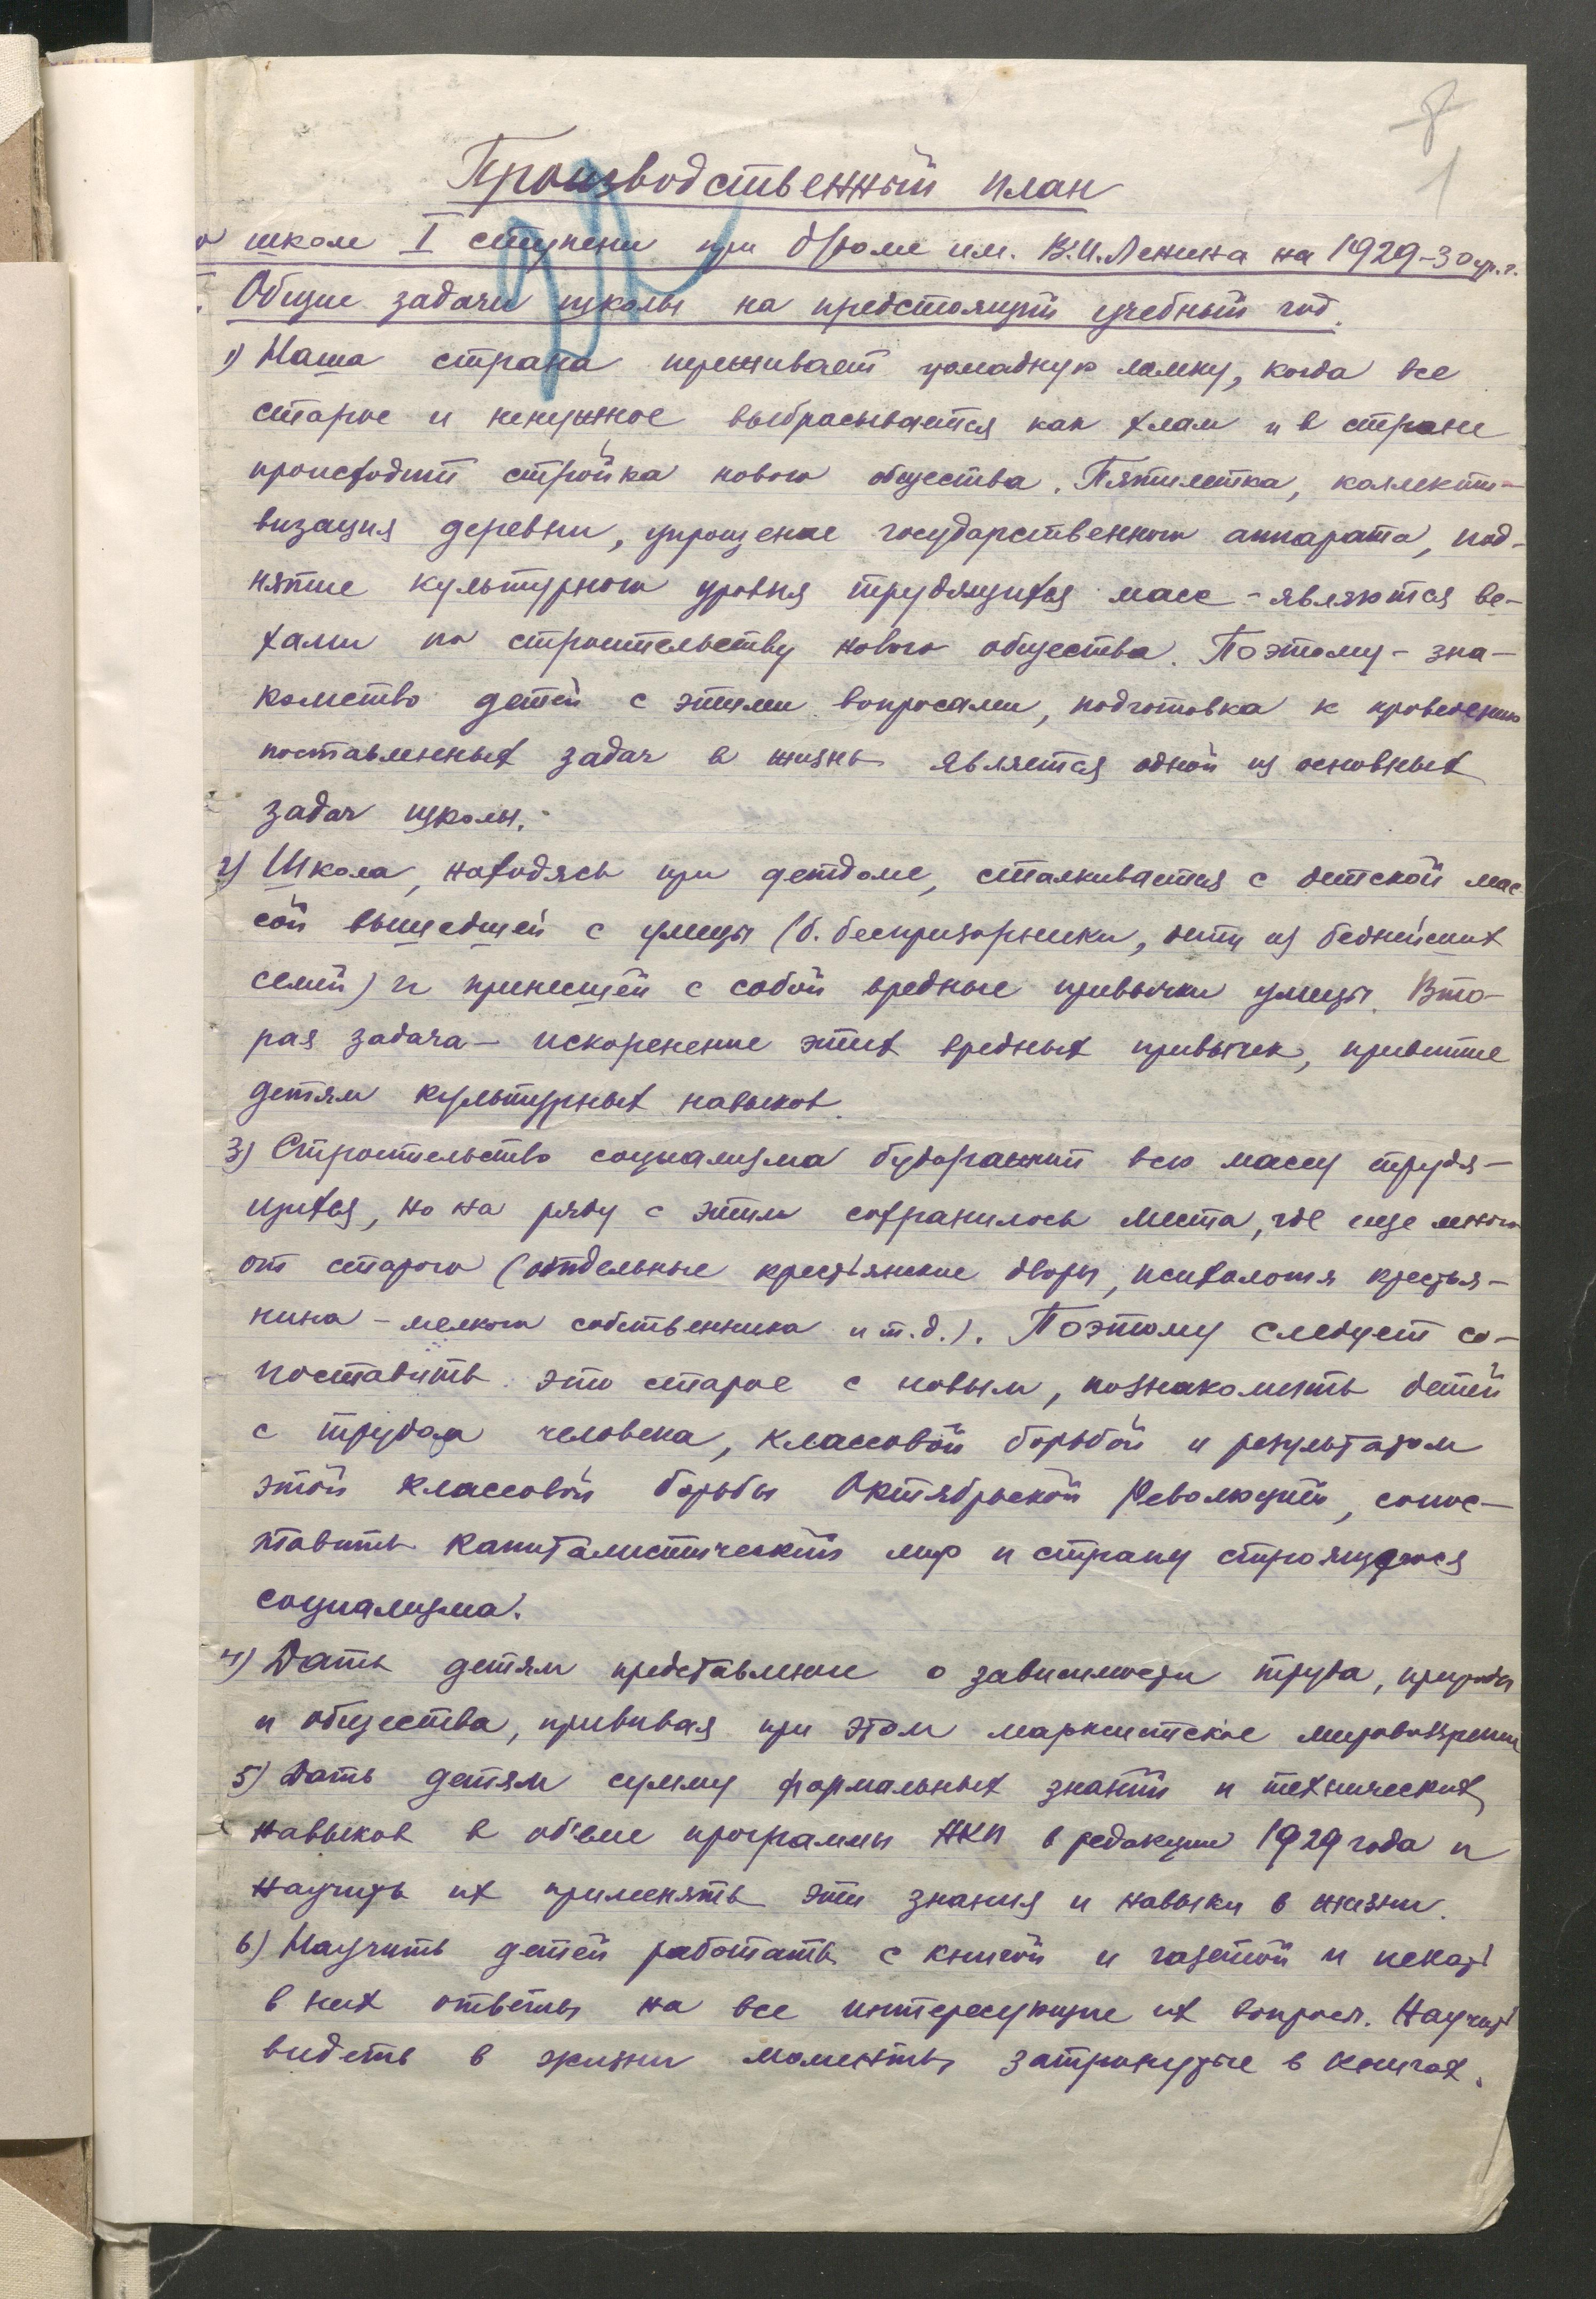 8
1
Производственный план
школе I ступени при д/доме им. В.И.Ленина на 1929-30 уч.г.
Общие задачи школы на предстоящий учебный год.
1) Наша страна переживает громадную ломку, когда все
старое и ненужное выбрасывается как хлам и в стране
происходит стройка нового общества. Пятилетка, коллекти-
визация деревни, упрощение государственного аппарата, под-
нятие культурного уровня трудящихся масс - являются ве-
хами по строительству нового общества. Поэтому - зна-
комство детей с этими вопросами, подготовка к проведению
поставленных задач в жизнь является одной из основных
задач школы.
2) Школа, находясь при детдоме, сталкивается с детской мас
сой вышедшей с улицы (б. беспризорники, дети из беднейших
семей) и принесшей с собой вредные привычки улицы. Вто-
рая задача - искоренение этих вредных привычек, привитие
детям культурных навыков.
3) Строительство социализма будоражит всю массу трудя-
щихся, но на ряду с этим сохранилось места, где еще много
от старого (отдельные крестьянские дворы, психология крестья-
нина - мелкого собственника и т.д.). Поэтому следует со-
поставить это старое с новым, познакомить детей
с трудом человека, классовой борьбой и результатом
этой классовой борьбы Октябрьской Революцией, сопос-
тавить капиталистический мир и страну строящегося
социализма.
4) Дать детям представление о зависимости труда, природы
и общества, прививая при этом марксистское мировоззрение
5) Дать детям сумму формальных знаний и технических
навыков в об'еме программы НКП в редакции 1929 года и
научить их применять эти знания и навыки в жизни.
6) Научить детей работать с книгой и газетой и искать
в них ответы на все интересующие их вопросы. Научить
видеть в жизни моменты, затронутые в книгах.